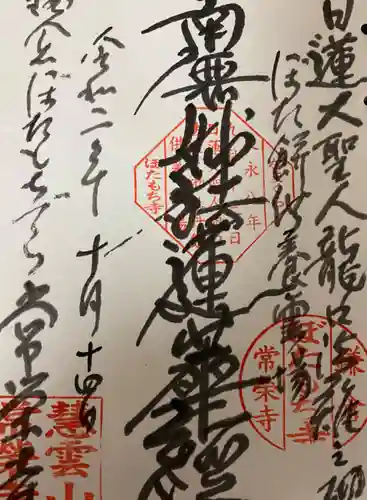 日蓮大聖人龍口法難之砌
ぼた餅供養霊場
南無妙法蓮華経
令和二年十月十四日
鎌倉ぼたもちでら常栄寺
文永八年
ぼたもち寺
ぼたもち寺
常栄寺
慧雲山